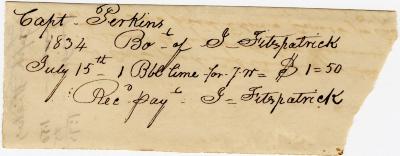 Capt. Perkins
1834 Bo.t of J Fitzpatrick
July 15th 1 Bbl lime for 7.n = $ 1=50
Rec.d pay.t J = Fitzpatrick